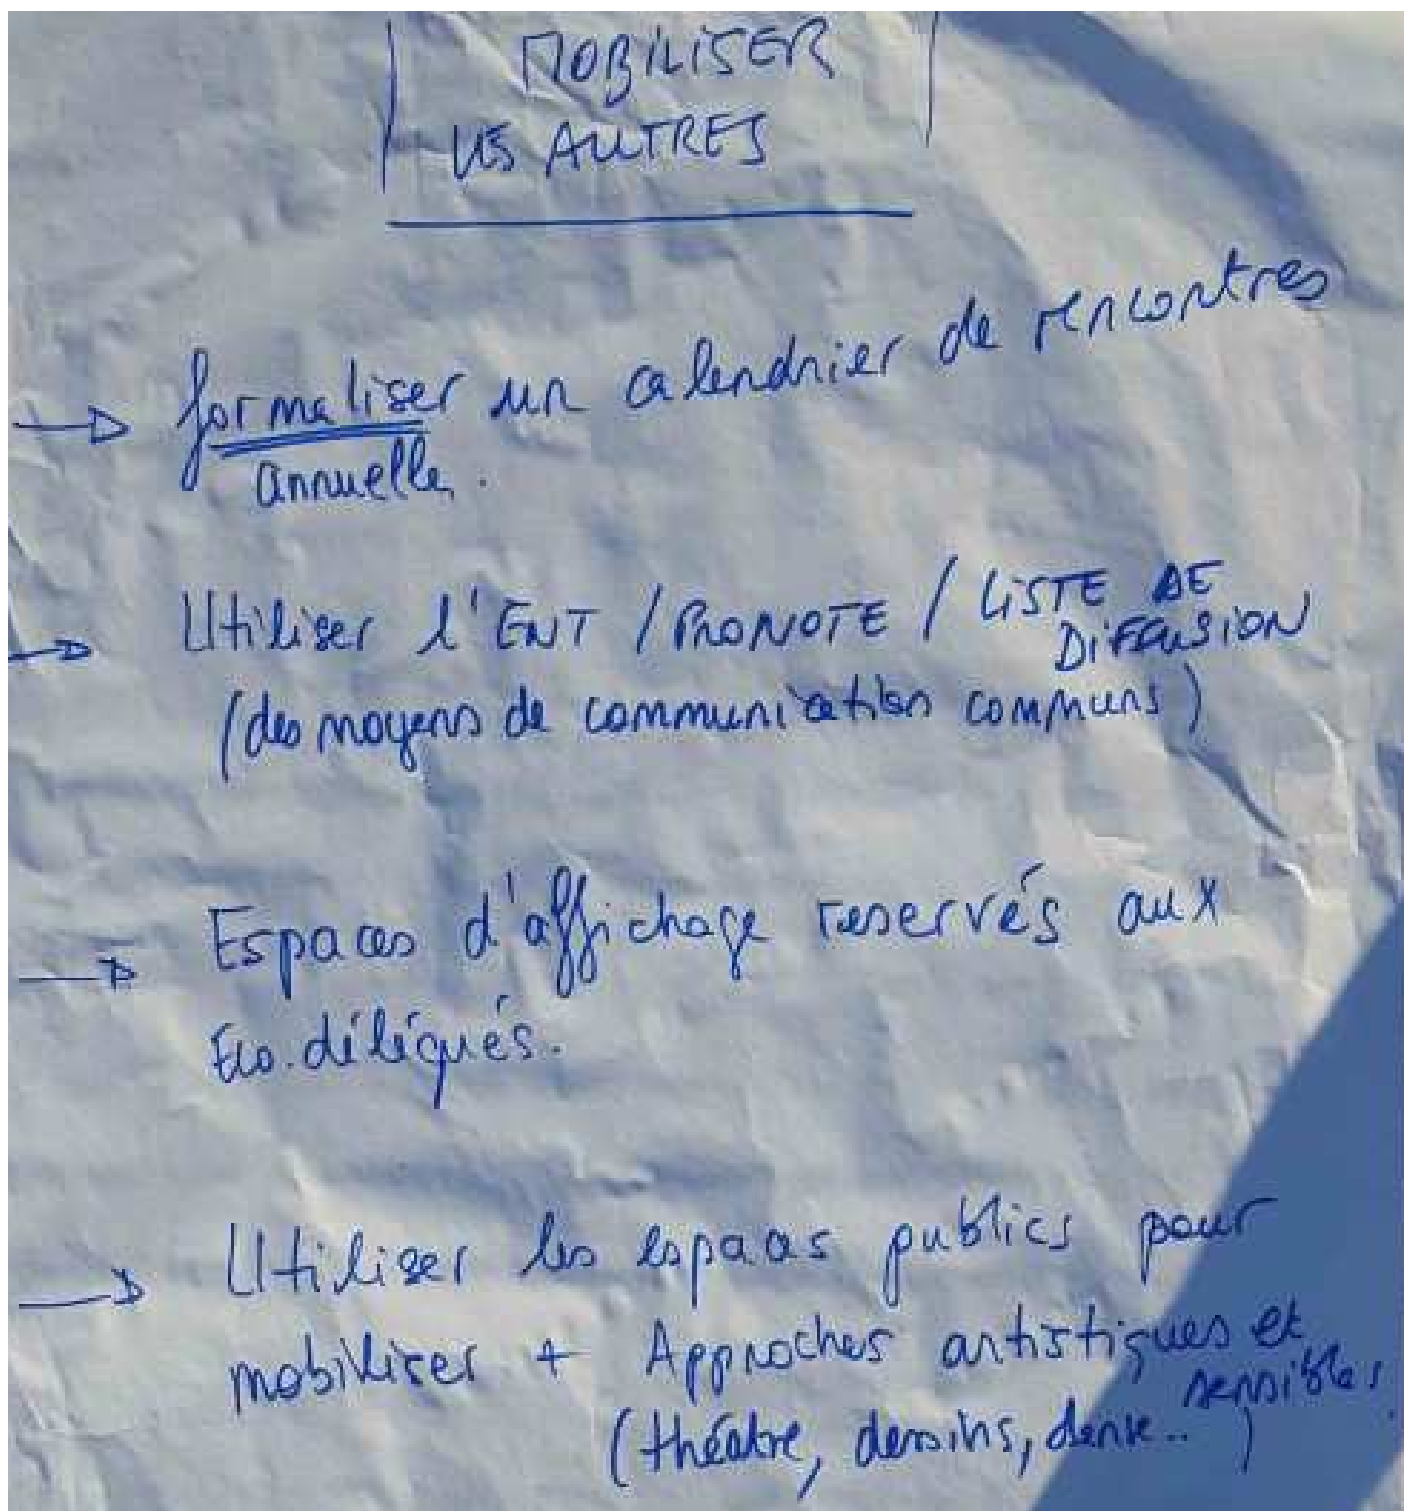 MOBILISER
LES AUTRES
→ formaliser un calendrier de rencontres
annuelle.
→ Utiliser l'ENT / PRONOTE / LISTE DE
DIFFUSION
(des moyens de communication communs)
→ Espaces d'affichage reservés aux
Éco.délégués.
→ Utiliser les espaces publics pour
mobiliser + Approches artistiques et
sensibles.
(théatre, dessins, danse..)